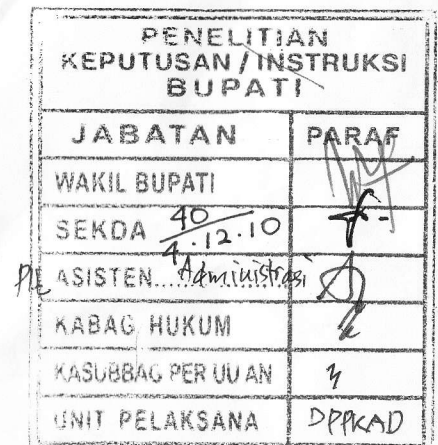 PENELITIAN
KEPUTUSAN / INSTRUKSI
BUPATI
JABATAN PARAF
WAKIL BUPATI
SEKDA 40
4.12.10
ASISTEN.... Administrasi
KABAG HUKUM
KASUBBAG PER UU AN
UNIT PELAKSANA DPPKAD